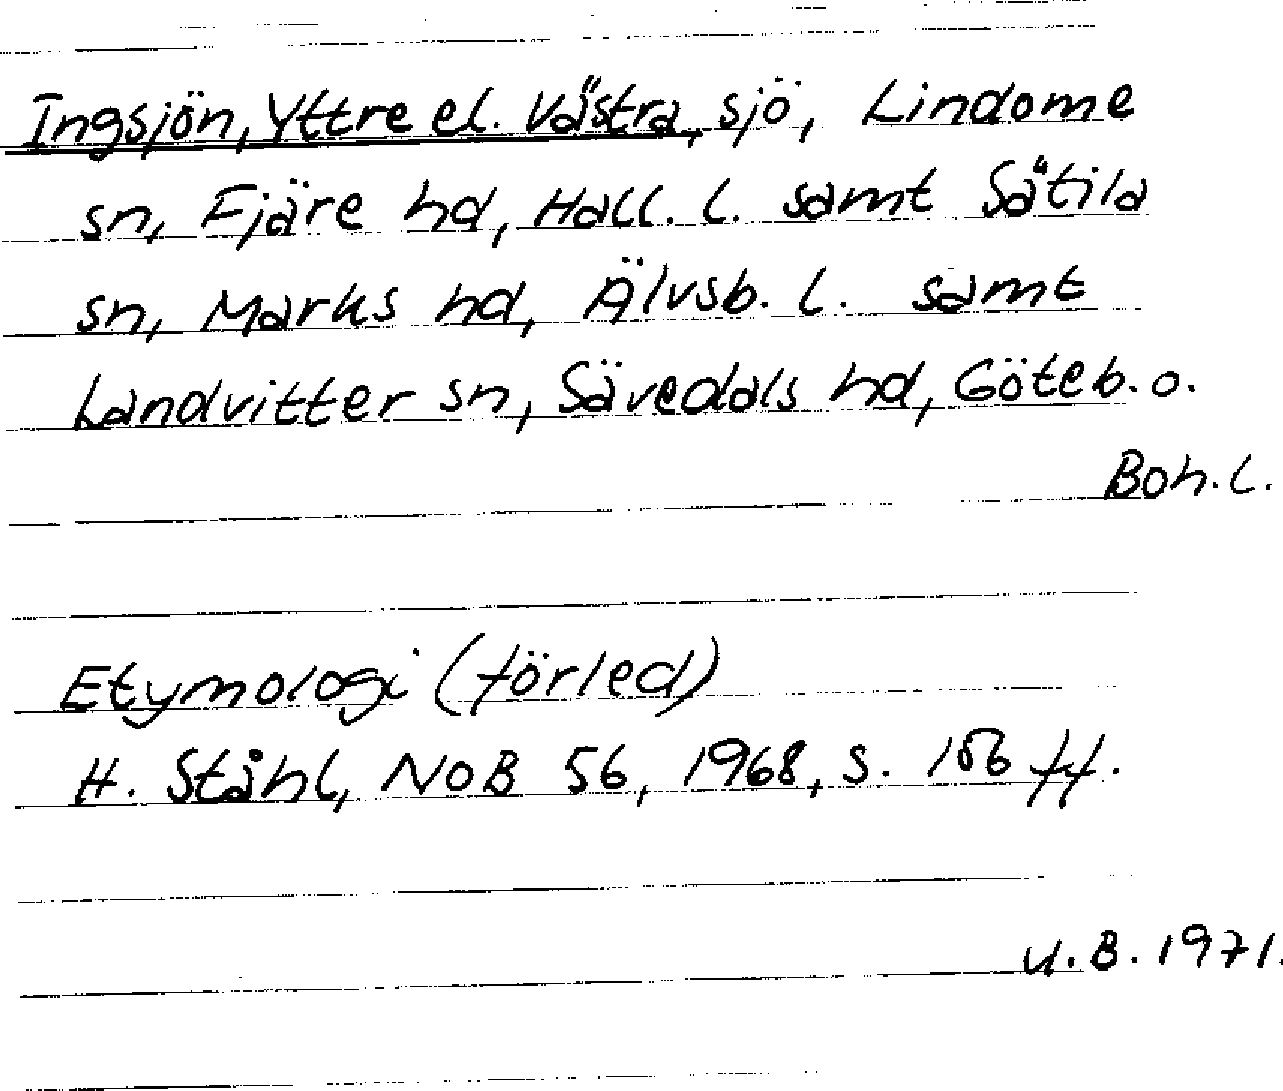 Ingsjön, Yttre el. Västra, sjö, Lindome
sn, Fjäre hd, Hall. l. samt Sätila
sn, Marks hd, Älvsb. l. samt
Landvitter sn, Sävedals hd, Göteb. o.
Boh. l.
Etymologi (förled)
H. Ståhl, NoB 56, 1968, s. 156 ff.
U.B. 1971.